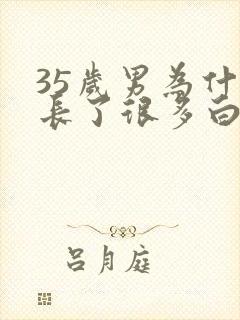 35歲男為什
長了很多白
呂月庭